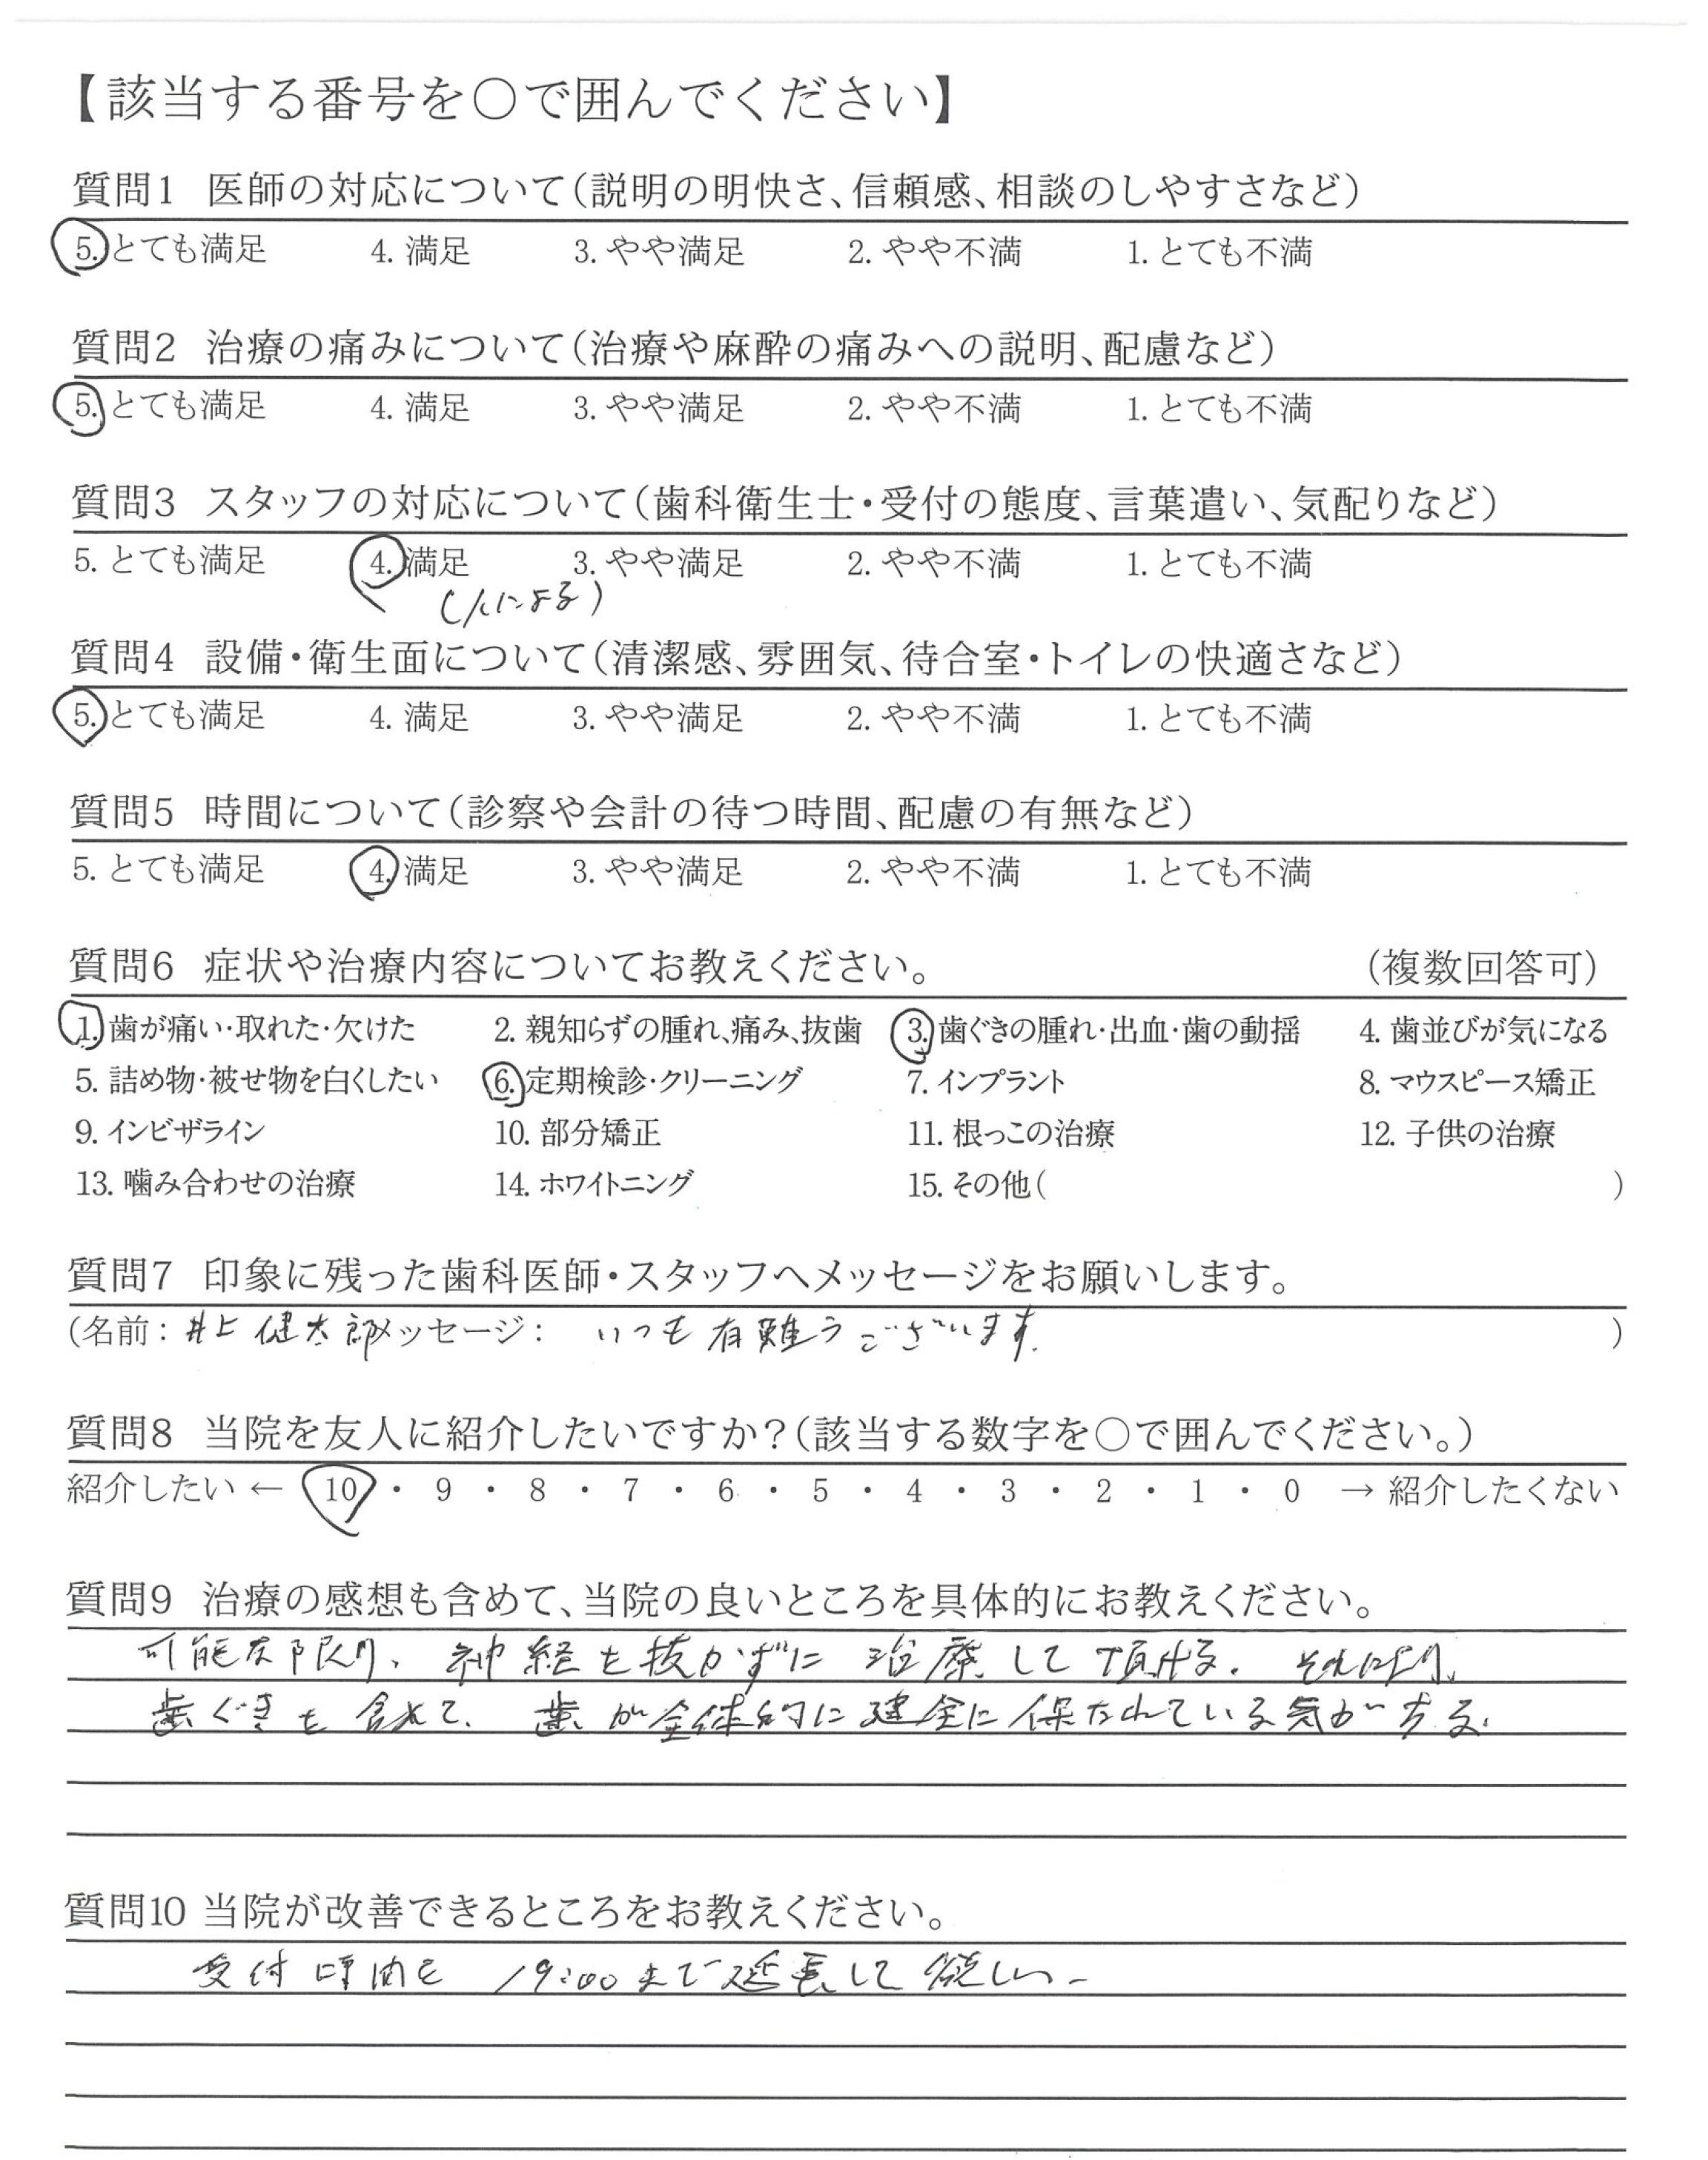 【該当する番号を○で囲んでください】
質問1 医師の対応について(説明の明快さ、信頼感、相談のしやすさなど)
5. とても満足 4. 満足 3. やや満足 2. やや不満 1. とても不満
質問2 治療の痛みについて(治療や麻酔の痛みへの説明、配慮など)
5. とても満足 4. 満足 3. やや満足 2. やや不満 1. とても不満
質問3 スタッフの対応について(歯科衛生士・受付の態度、言葉遣い、気配りなど)
5. とても満足 4. 満足 3. やや満足 2. やや不満 1. とても不満
(人による)
質問4 設備・衛生面について(清潔感、雰囲気、待合室・トイレの快適さなど)
5. とても満足 4. 満足 3. やや満足 2. やや不満 1. とても不満
質問5 時間について(診察や会計の待つ時間、配慮の有無など)
5. とても満足 4. 満足 3. やや満足 2. やや不満 1. とても不満
質問6 症状や治療内容についてお教えください。 (複数回答可)
1. 歯が痛い・取れた・欠けた 2. 親知らずの腫れ、痛み、抜歯 3. 歯ぐきの腫れ・出血・歯の動揺 4. 歯並びが気になる
5. 詰め物・被せ物を白くしたい 6. 定期検診・クリーニング 7. インプラント 8. マウスピース矯正
9. インビザライン 10. 部分矯正 11. 根っこの治療 12. 子供の治療
13. 噛み合わせの治療 14. ホワイトニング 15. その他( )
質問7 印象に残った歯科医師・スタッフへメッセージをお願いします。
(名前: 井上健太郎 メッセージ: いつも有難うございます。 )
質問8 当院を友人に紹介したいですか?(該当する数字を○で囲んでください。)
紹介したい ← 10 ・ 9 ・ 8 ・ 7 ・ 6 ・ 5 ・ 4 ・ 3 ・ 2 ・ 1 ・ 0 → 紹介したくない
質問9 治療の感想も含めて、当院の良いところを具体的にお教えください。
可能な限り、神経を抜かずに治療して頂ける。それにより、
歯ぐきも含めて、歯が全体的に健全に保たれている気がする。
質問10 当院が改善できるところをお教えください。
受付時間を 19:00まで延長して欲しい。